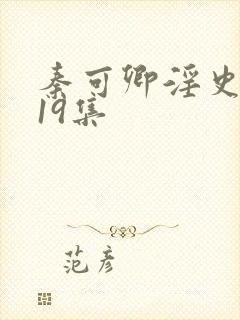 秦可卿淫史
19集
范彦